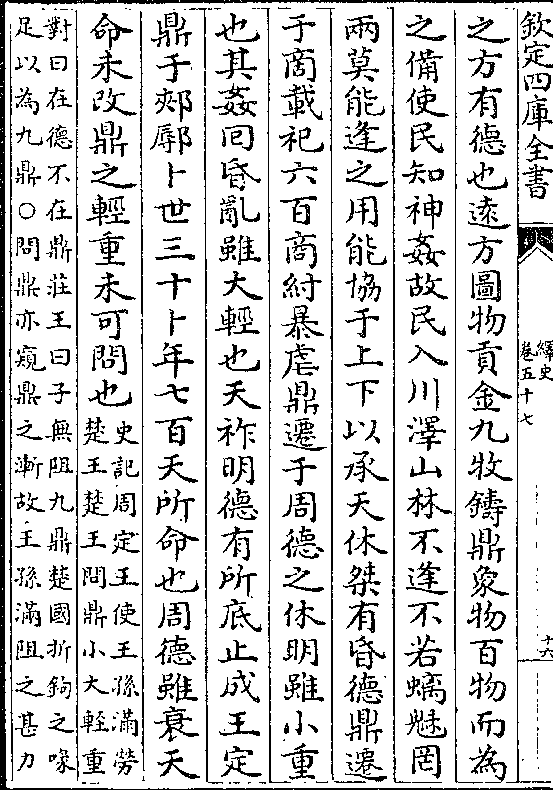 欽定四庫全書
繹史
卷五十七
十六
之方有德也遠方圖物貢金九牧鑄鼎象物百物而為
之備使民知神姦故民入川澤山林不逢不若螭魅罔
兩莫能逢之用能協于上下以承天休桀有昏德鼎遷
于商載祀六百商紂暴虐鼎遷于周德之休明雖小重
也其姦回昏亂雖大輕也天祚明德有所底止成王定
鼎于郟鄏卜世三十卜年七百天所命也周德雖衰天
命未改鼎之輕重未可問也
史記周定王使王孫滿勞
楚王楚王問鼎小大輕重
對曰在德不在鼎莊王曰子無阻九鼎楚國折鉤之喙
足以為九鼎○問鼎亦窺鼎之漸故王孫滿阻之甚力